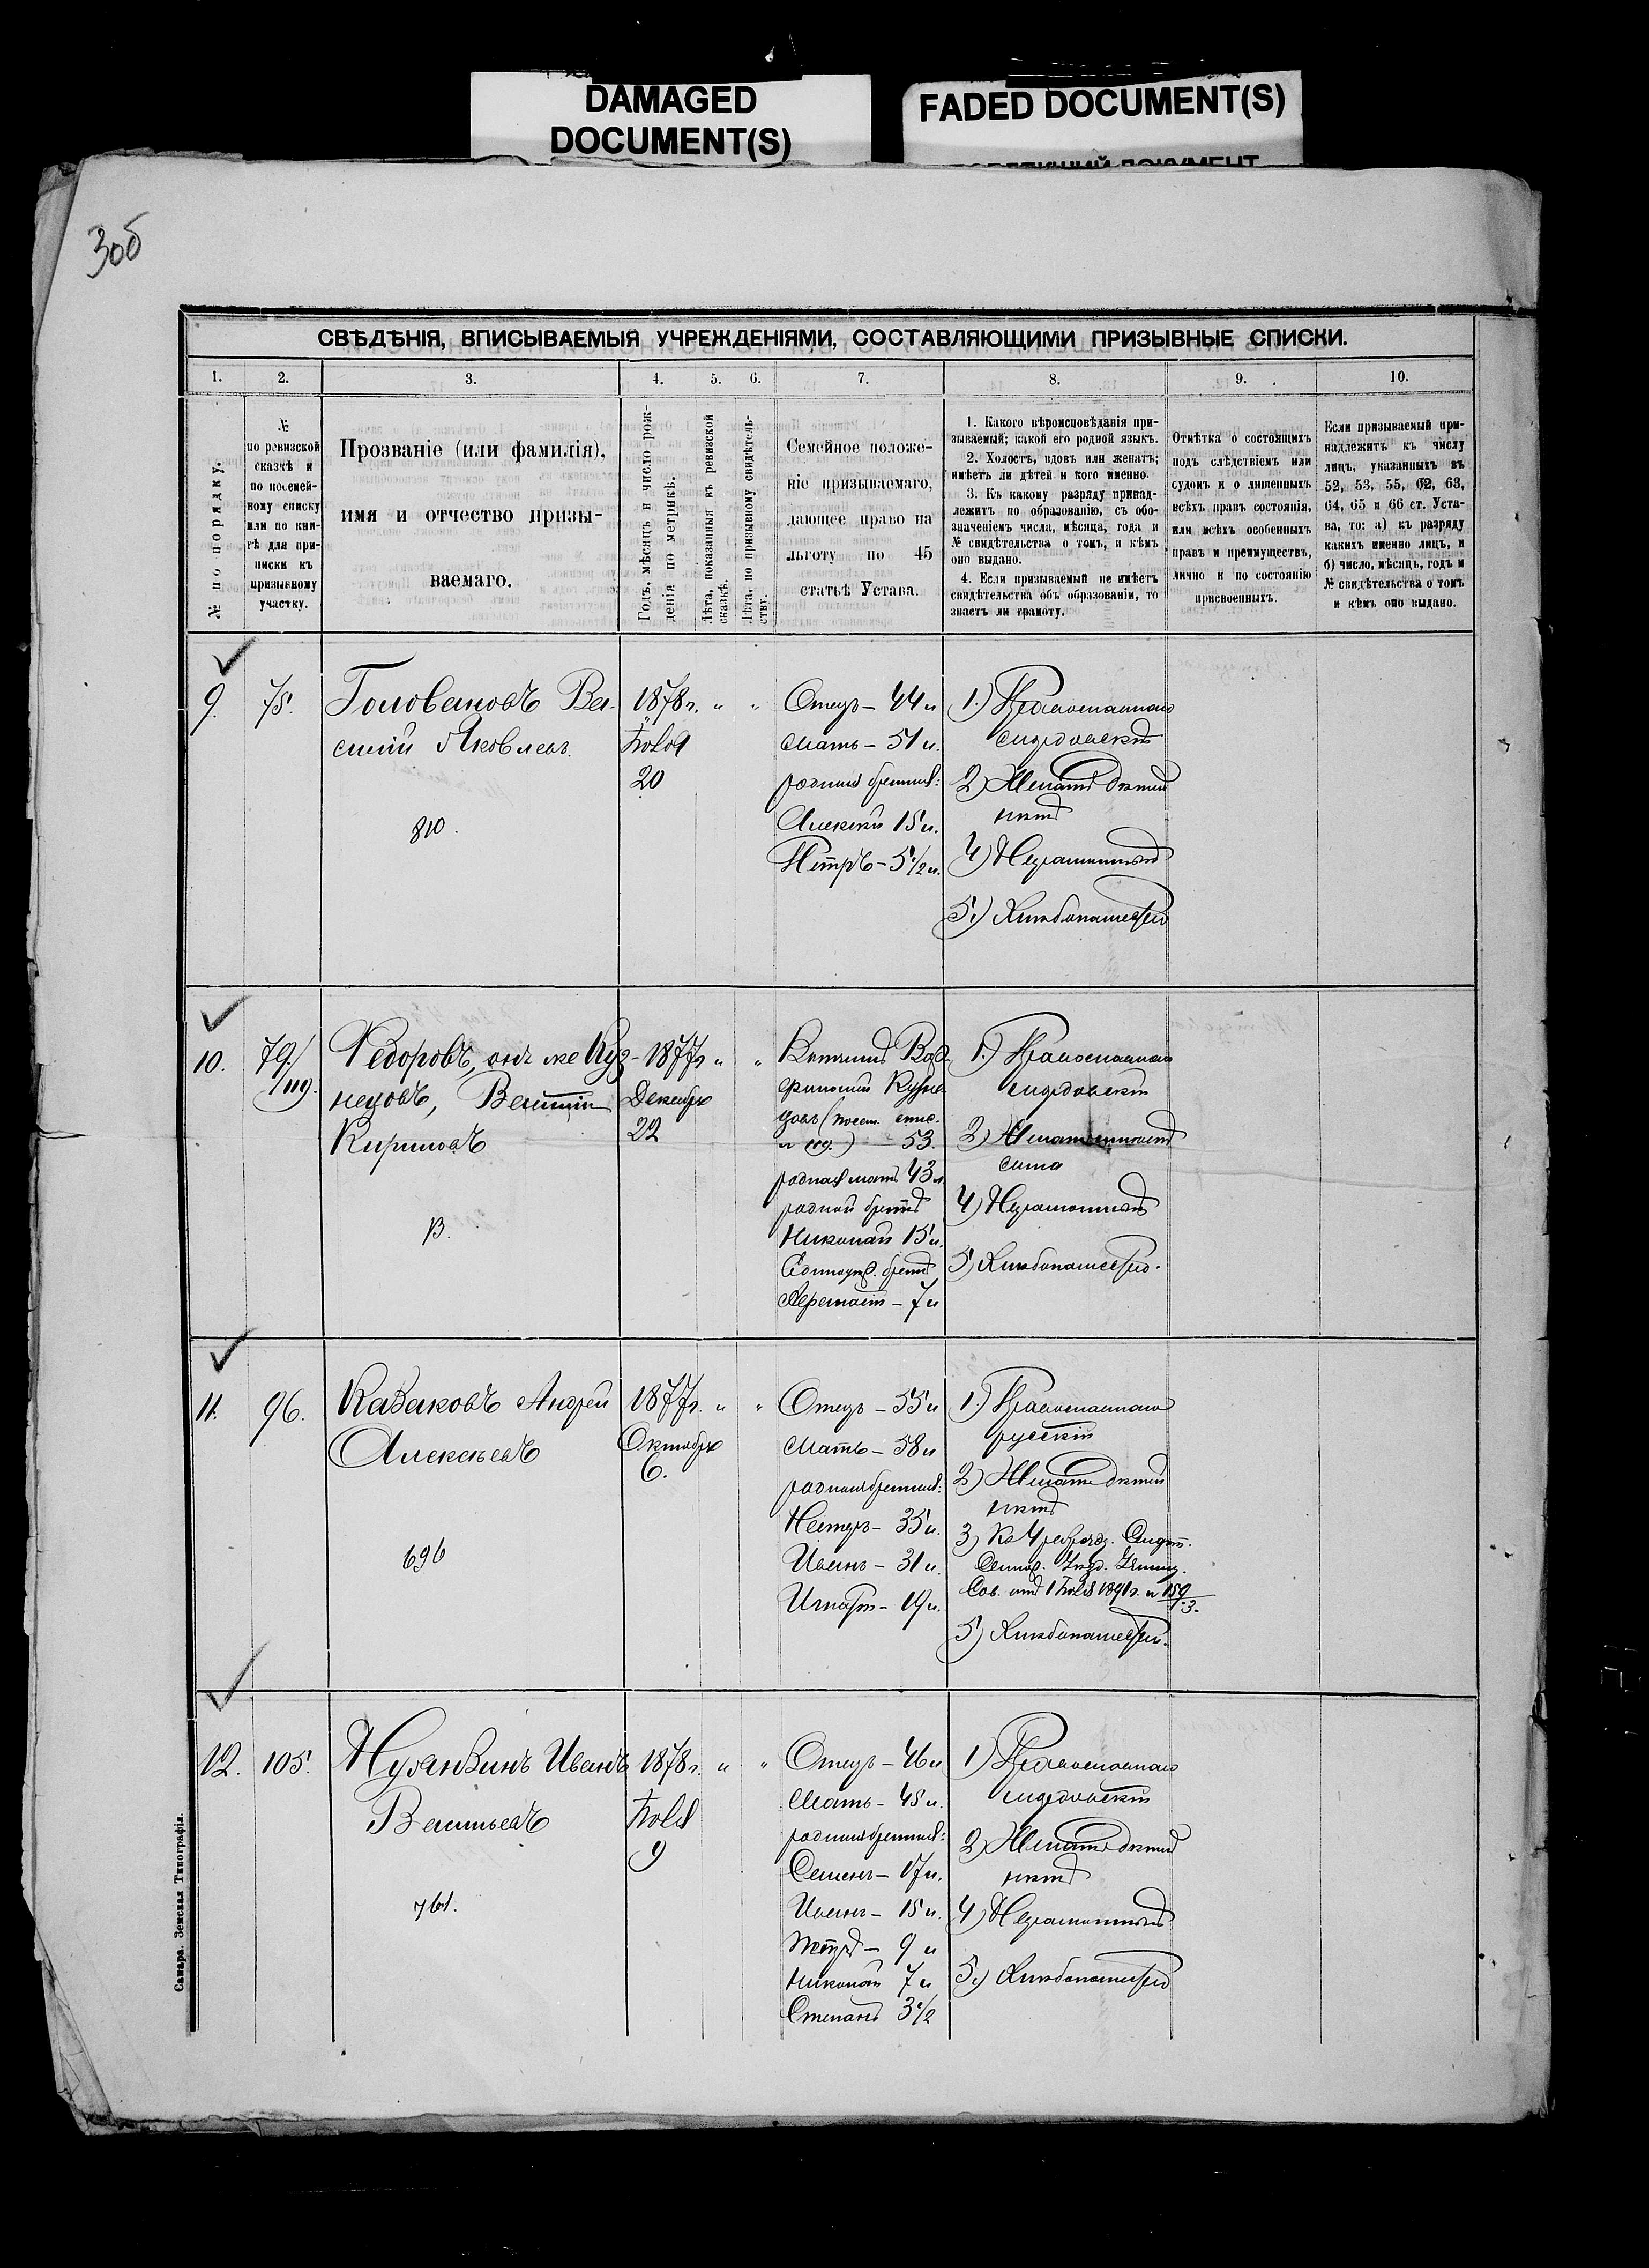 DAMAGED
DOCUMENT(S)
FADED DOCUMENT(S)
30б
СВѢДѢНІЯ, ВПИСЫВАЕМЫЯ УЧРЕЖДЕНІЯМИ, СОСТАВЛЯЮЩИМИ ПРИЗЫВНЫЕ СПИСКИ.
1. 2. 3. 4. 5. 6. 7. 8. 9. 10.
№ по порядку.
№
по ревизской
сказкѣ и
по посемей-
ному списку
или по кни-
гѣ для при-
писки къ
призывному
участку.
Прозваніе (или фамилія),
имя и отчество призы-
ваемаго.
Годъ, мѣсяцъ и число рож-
денія по метрикѣ.
Лѣта, показанныя въ ревизской
сказкѣ.
Лѣта, по призывному свидѣтель-
ству.
Семейное положе-
ніе призываемаго,
дающее право на
льготу по 45
статьѣ Устава.
1. Какого вѣроисповѣданія при-
зываемый; какой его родной языкъ.
2. Холостъ, вдовъ или женатъ;
имѣетъ ли дѣтей и кого именно.
3. Къ какому разряду принад-
лежитъ по образованію, съ обо-
значеніемъ числа, мѣсяца, года и
№ свидѣтельства о томъ, и кѣмъ
оно выдано.
4. Если призываемый не имѣетъ
свидѣтельства объ образованіи, то
знаетъ ли грамоту.
Отмѣтка о состоящихъ
подъ слѣдствіемъ или
судомъ и о лишенныхъ
всѣхъ правъ состоянія,
или всѣхъ особенныхъ
правъ и преимуществъ,
лично и по состоянію
присвоенныхъ.
Если призываемый при-
надлежитъ къ числу
лицъ, указанныхъ въ
52, 53, 55, 62, 63,
64, 65 и 66 ст. Уста-
ва, то: а) къ разряду
какихъ именно лицъ, и
б) число, мѣсяцъ, годъ и
№ свидѣтельства о томъ
и кѣмъ оно выдано.
9. 75.
Головановъ Ва-
силій Яковлев.
810.
1878г. " "
Іюля
20
Отецъ – 44 л
Мать – 51 л.
родные братья:
Алексѣй 15 л.
Петръ – 5 1/2 л.
1.) Православнаго
мордовскій
2) Женатъ дѣтей
нѣтъ
4) Неграмотный
5.) Хлѣбопашество
10. 79/119.
Федоровъ, онъ же Куз-
нецовъ, Василій
Кириловъ
В.
1877г " "
Декабря
22
Вотчимъ
Кузне-
цовъ (посем. спис.
№ 119.) 53.
родная мать 43 л
родной братъ
Николай 15 л.
Единоутр. братъ
7 л
1.) Православнаго
мордовскій
2)
4) Неграмотный
5) Хлѣбопашество.
11. 96.
Казаковъ Андрей
Алексѣевъ
696
1877г. " "
Октября
6.
Отецъ – 55 л
Мать – 58 л
родные братья:
Нестеръ – 35 л.
Иванъ – 31 л.
Игнатъ – 19 л.
1.) Православнаго
русскій
2) Женатъ дѣтей
нѣтъ
3) Къ 4 разряду. Свидѣт.
Уѣзд. Училищ.
Сов. отъ 1 Іюля 1891г. №
5) Хлѣбопашество.
12. 105.
Нуянзинъ Иванъ
Васильевъ
761.
1878г. " "
Іюля
9
Отецъ – 46 л
Мать – 45 л.
родные братья:
Семенъ – 17 л.
Иванъ – 15 л.
Петръ – 9 л
Николай 7 л
Степанъ 3 1/2
1) Православнаго
мордовскій
2) Женатъ дѣтей
нѣтъ
4) Неграмотный
5.) Хлѣбопашество
Самара. Земская Типографія.